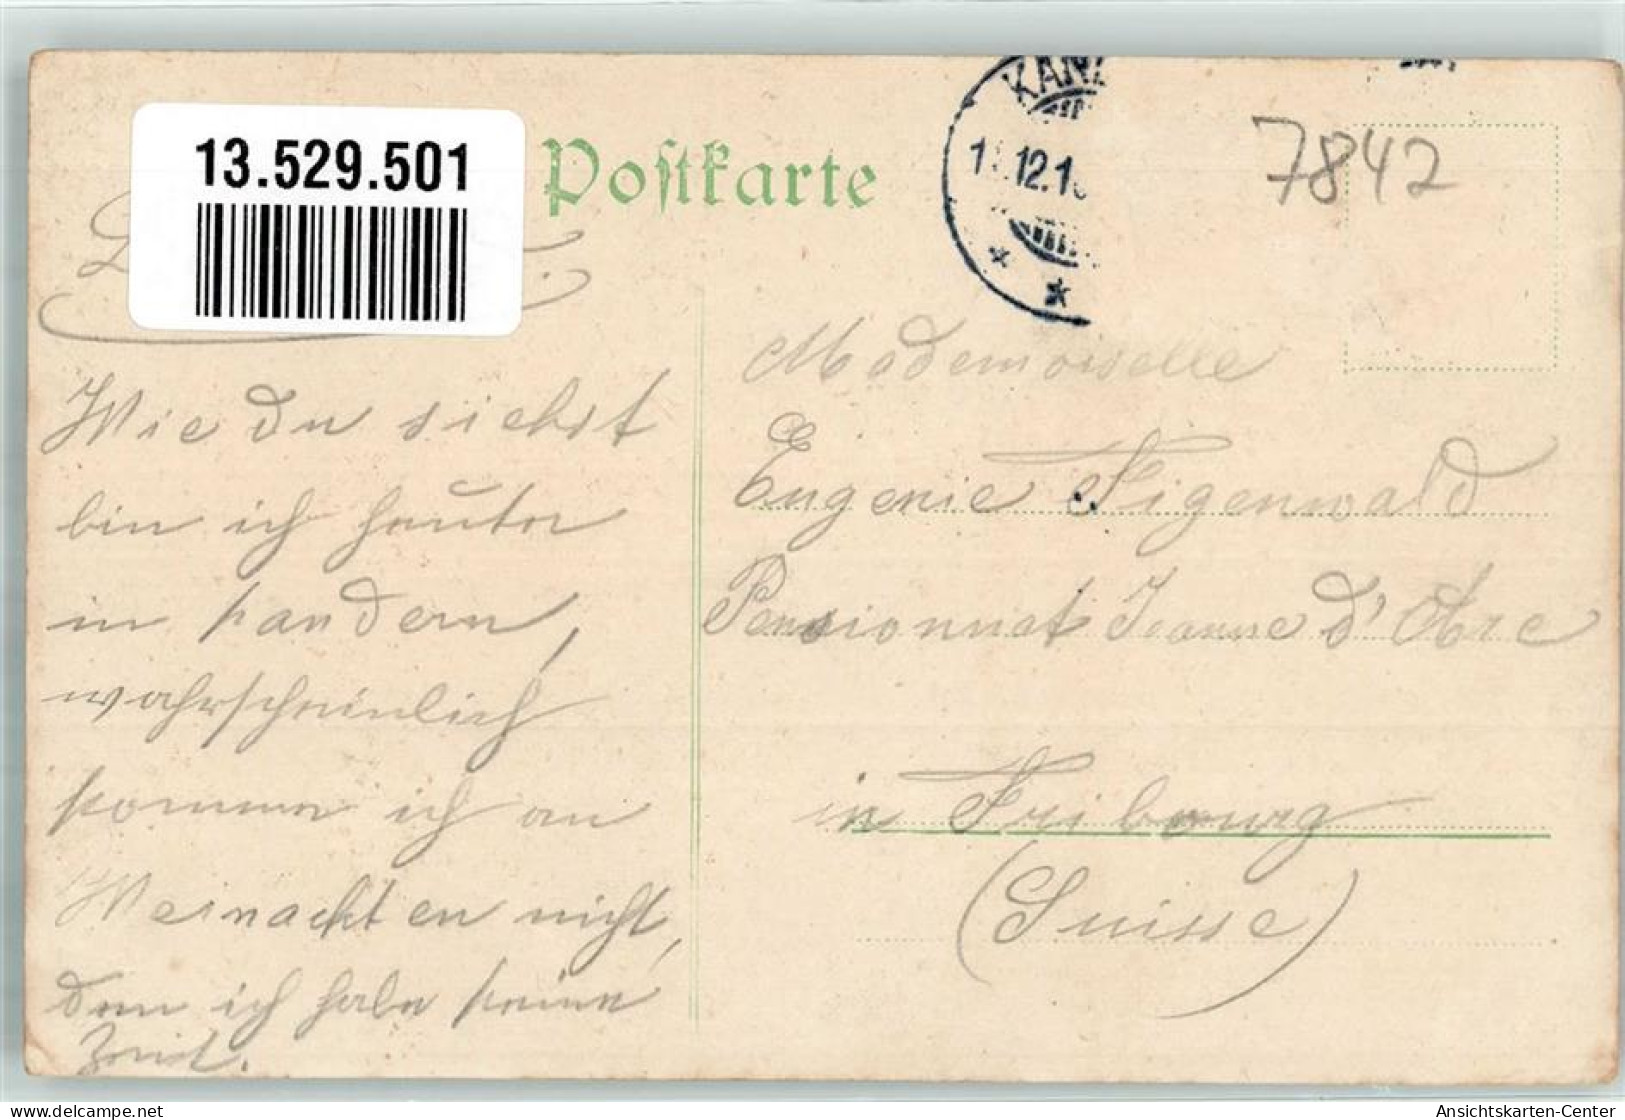 13.529.501
Postkarte
KAN
12.1
7842
Wie du siehst
bin ich heute
in Kandern,
wahrscheinlich
komme ich an
Weinachten nicht,
denn ich habe keine
Zeit.
Mademoiselle
Eugenie Figenwald
Pensionnat Jeanne d'Arc
in Fribourg
(Suisse)
delcampe.net
Ansichtskarten-Center